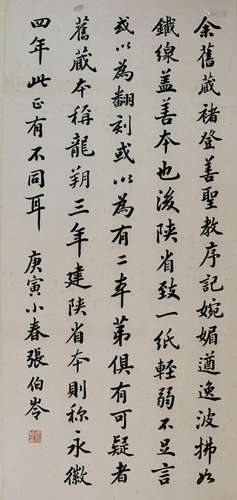 余舊藏褚登善聖教序記婉媚遒逸波拂如
鐵線蓋善本也後陝省致一紙輕弱不足言
或以為翻刻或以為有二本第俱有可疑者
舊藏本稱龍朔三年建陝省本則称永徽
四年此正有不同耳 庚寅小春張伯岺